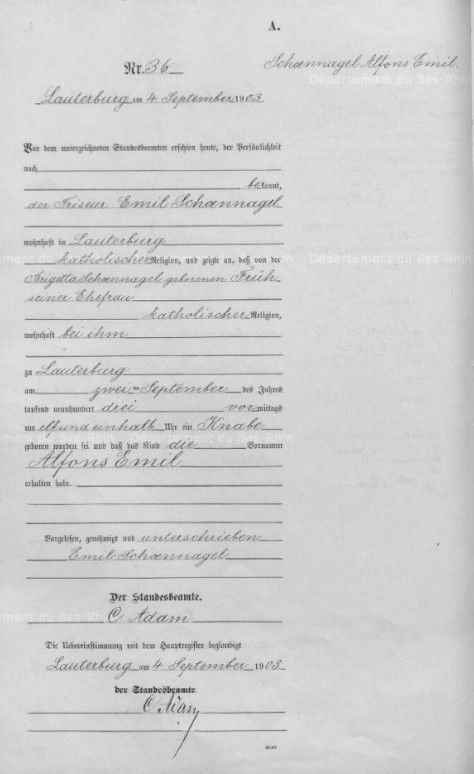 A.
Nr. 36
Schœnnagel Alfons Emil.
Lauterburg am 4 September 1903
Vor dem unterzeichneten Standesbeamten erschien heute, der Persönlichkeit
nach
bekannt,
der Friseur Emil Schœnnagel
wohnhaft in Lauterburg
katholischer Religion, und zeigte an, daß von der
Brigetta Schœnnagel geborenen Früh
seiner Ehefrau
katholischer Religion,
wohnhaft bei ihm
zu Lauterburg
am zweiten September des Jahres
tausend neunhundert drei vormittags
um elf und einhalb Uhr ein Knabe
geboren worden sei und daß das Kind die Vornamen
Alfons Emil
erhalten habe.
Vorgelesen, genehmigt und unterschrieben
Emil Schœnnagel
Der Standesbeamte.
C Adam
Die Uebereinstimmung mit dem Hauptregister beglaubigt
Lauterburg am 4 September 1903
der Standesbeamte
C Adam
Département du Bas-Rhin
Département du Bas-Rhin
Département du Bas-Rhin
Département du Bas-Rhin